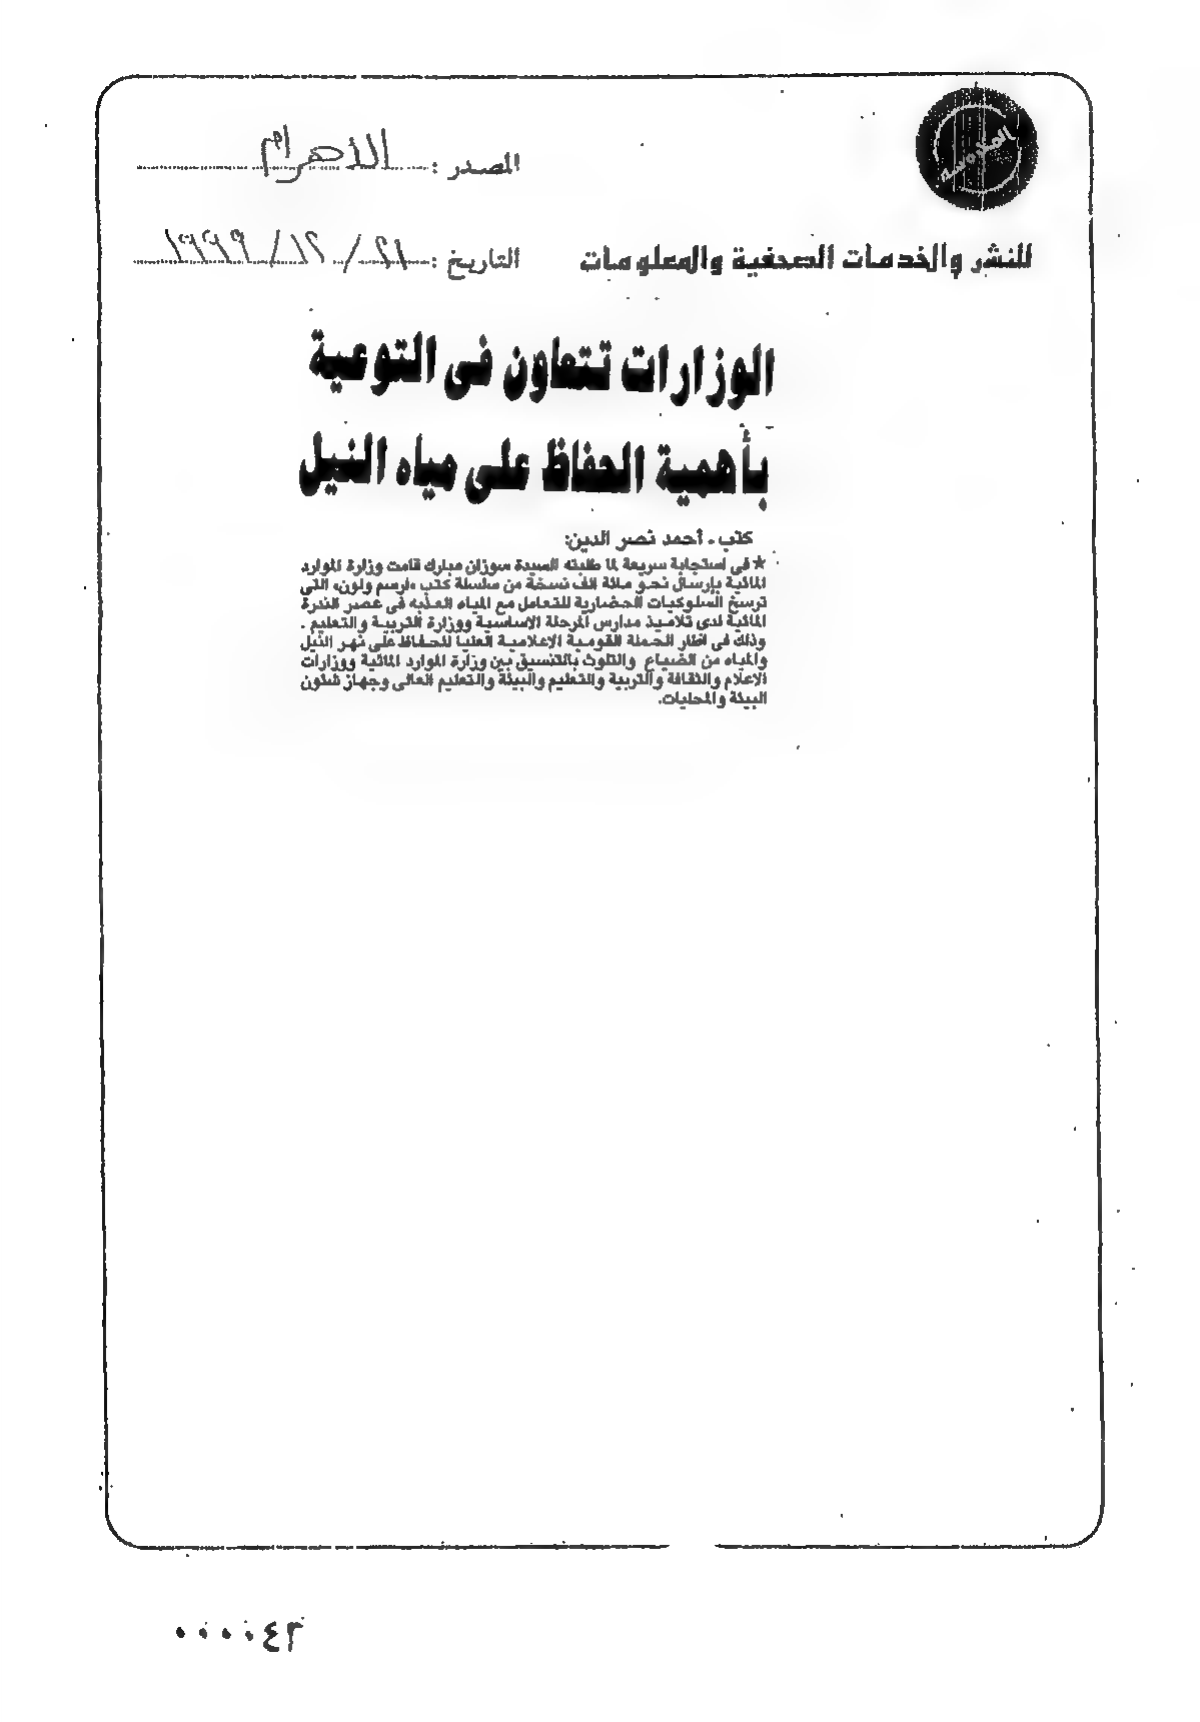 المصدر : الاهرام
للنشر والخدمات الصحفية والمعلومات
التاريخ : ٢١ / ١٢ / ١٩٩٩
الوزارات تتعاون فى التوعية
بأهمية الحفاظ على مياه النيل
كتب ـ أحمد نصر الدين:
★ فى استجابة سريعة لما طلبته السيدة سوزان مبارك قامت وزارة الموارد
المائية بإرسال نحو مائة الف نسخة من سلسلة كتب «ارسم ولون» التى
ترسخ السلوكيات الحضارية للتعامل مع المياه العذبه فى عصر الندرة
المائية لدى تلاميذ مدارس المرحلة الاساسية ووزارة التربية والتعليم .
وذلك فى اطار الحملة القومية الإعلامية العليا للحفاظ على نهر النيل
والمياه من الضياع والتلوث بالتنسيق بين وزارة الموارد المائية ووزارات
الاعلام والثقافة والتربية والتعليم والبيئة والتعليم العالى وجهاز شئون
البيئة والمحليات.
٠٠٠٠٤٣